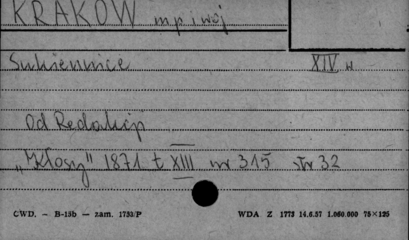 KRAKÓW m p i woj
Sukiennice XIV w
Od Redakcji
"Kłosy" 1871 t XIII nr 315 str 32
CWD. — B-15b — zam. 1733/P WDA Z 1773 14.6.57 1.060.000 75×125